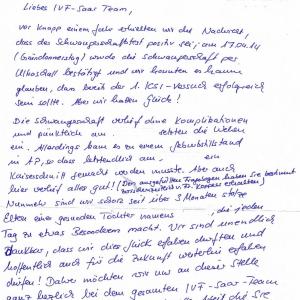 Liebes IVF-Saar Team,
vor knapp einem Jahr erhielten wir den Nachweis,
dass der Schwangerschaftstest positiv sei; am 17.04.14
(Gründonnerstag) wurde die Schwangerschaft per
Ultraschall bestätigt und wir konnten es kaum
glauben, dass bereits der 1. ICSI-Versuch erfolgreich
sein sollte. Aber wir hatten Glück!
Die Schwangerschaft verlief ohne Komplikationen
und pünktlich am setzten die Wehen
ein. Allerdings kam es zu einem Geburtsstillstand
in AP, so dass letztendlich am ein
Kaiserschnitt gemacht werden musste. Aber auch
hier verlief alles gut! (Den ausgefüllten Fragebogen haben Sie bestimmt
Nunmehr sind wir schon seit über 3 Monaten stolze
Eltern einer gesunden Tochter namens , die jeden
Tag zu etwas Besonderem macht. Wir sind unendlich
dankbar, dass wir dies Glück erfahren durften und
hoffentlich auch für die Zukunft weiterhin erfahren
dürfen! Daher möchten wir uns an dieser Stelle
ganz herzlich bei dem gesamten IVF-Saar-Team